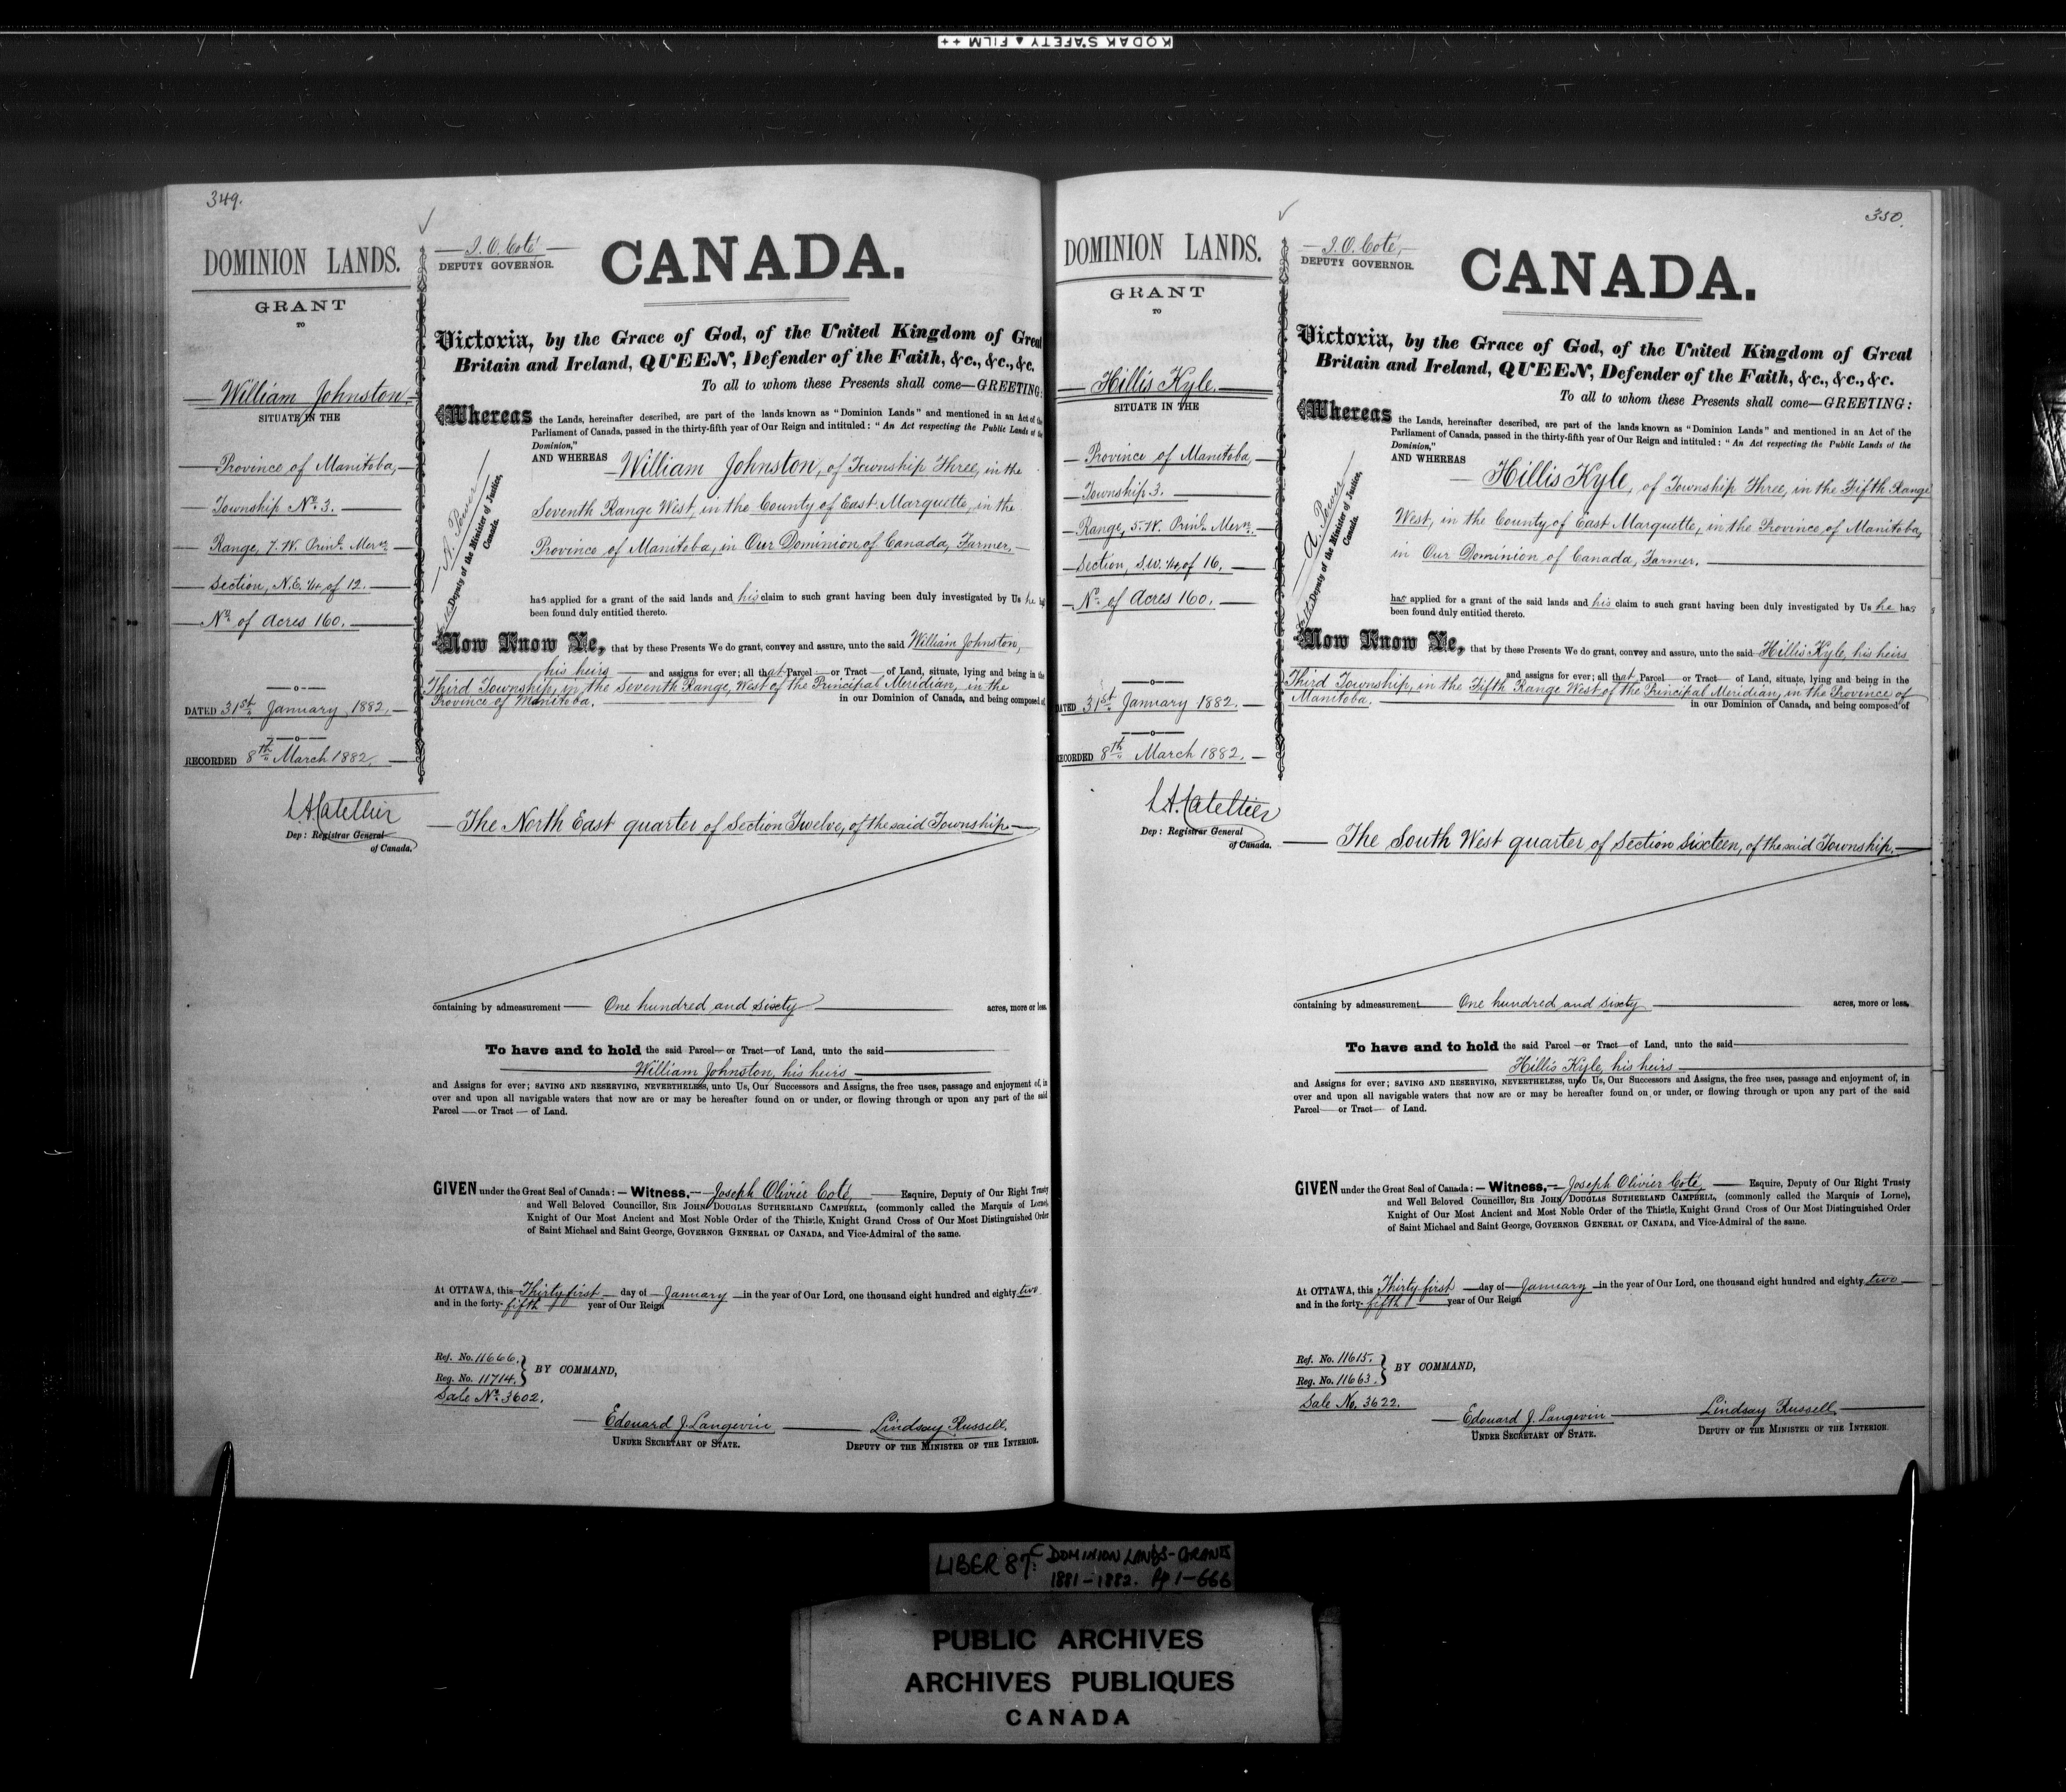 KODAK SAFETY ▲ FILM ++
349.
DOMINION LANDS.
GRANT
TO
William Johnston,
SITUATE IN THE
Province of Manitoba,
Township No. 3.
Range, 7. W. Prinl. Mern.
Section, N.E. 1/4 of 12.
No. of Acres 160.
DATED 31st January, 1882.
RECORDED 8th March 1882.
L.A. Catellier
Dep: Registrar General
of Canada.
J. O. Coté
DEPUTY GOVERNOR.
CANADA.
Victoria, by the Grace of God, of the United Kingdom of Great
Britain and Ireland, QUEEN, Defender of the Faith, &c., &c., &c.
To all to whom these Presents shall come—GREETING:
Whereas the Lands, hereinafter described, are part of the lands known as "Dominion Lands" and mentioned in an Act of the
Parliament of Canada, passed in the thirty-fifth year of Our Reign and intituled: "An Act respecting the Public Lands of the
Dominion,"
AND WHEREAS William Johnston, of Township Three, in the
Seventh Range West, in the County of East Marquette, in the
Province of Manitoba, in Our Dominion of Canada, Farmer,
A. Power
Deputy of the Minister of Justice,
Canada.
has applied for a grant of the said lands and his claim to such grant having been duly investigated by Us he has
been found duly entitled thereto.
Now Know Ye, that by these Presents We do grant, convey and assure, unto the said William Johnston,
his heirs and assigns for ever; all that Parcel or Tract of Land, situate, lying and being in the
Third Township, in the Seventh Range, West of the Principal Meridian, in the
Province of Manitoba. in our Dominion of Canada, and being composed of
The North East quarter of Section Twelve, of the said Township
containing by admeasurement One hundred and sixty acres, more or less.
To have and to hold the said Parcel or Tract of Land, unto the said
William Johnston, his heirs
and Assigns for ever; SAVING AND RESERVING, NEVERTHELESS, unto Us, Our Successors and Assigns, the free uses, passage and enjoyment of, in
over and upon all navigable waters that now are or may be hereafter found on or under, or flowing through or upon any part of the said
Parcel or Tract of Land.
GIVEN under the Great Seal of Canada: — Witness, Joseph Olivier Coté, Esquire, Deputy of Our Right Trusty
and Well Beloved Councillor, SIR JOHN DOUGLAS SUTHERLAND CAMPBELL, (commonly called the Marquis of Lorne),
Knight of Our Most Ancient and Most Noble Order of the Thistle, Knight Grand Cross of Our Most Distinguished Order
of Saint Michael and Saint George, GOVERNOR GENERAL OF CANADA, and Vice-Admiral of the same.
At OTTAWA, this Thirty first day of January in the year of Our Lord, one thousand eight hundred and eighty two
and in the forty-fifth year of Our Reign
Ref. No. 11666.
Reg. No. 11714. } BY COMMAND,
Sale No. 3602.
Edouard J. Langevin Lindsay Russell,
UNDER SECRETARY OF STATE. DEPUTY OF THE MINISTER OF THE INTERIOR.
350.
DOMINION LANDS.
GRANT
TO
Hillis Kyle.
SITUATE IN THE
Province of Manitoba,
Township 3.
Range, 5. W. Prinl. Mern.
Section, S.W. 1/4, of 16.
No. of Acres 160.
DATED 31st January 1882.
RECORDED 8th March 1882.
L.A. Catellier
Dep: Registrar General
of Canada.
J. O. Coté,
DEPUTY GOVERNOR.
CANADA.
Victoria, by the Grace of God, of the United Kingdom of Great
Britain and Ireland, QUEEN, Defender of the Faith, &c., &c., &c.
To all to whom these Presents shall come—GREETING:
Whereas the Lands, hereinafter described, are part of the lands known as "Dominion Lands" and mentioned in an Act of the
Parliament of Canada, passed in the thirty-fifth year of Our Reign and intituled: "An Act respecting the Public Lands of the
Dominion,"
AND WHEREAS
Hillis Kyle, of Township Three, in the Fifth Range
West, in the County of East Marquette, in the Province of Manitoba,
in Our Dominion of Canada, Farmer.
A. Power
Deputy of the Minister of Justice,
Canada.
has applied for a grant of the said lands and his claim to such grant having been duly investigated by Us he has
been found duly entitled thereto.
Now Know Ye, that by these Presents We do grant, convey and assure, unto the said Hillis Kyle, his heirs
and assigns for ever; all that Parcel or Tract of Land, situate, lying and being in the
Third Township, in the Fifth Range West of the Principal Meridian, in the Province of
Manitoba. in our Dominion of Canada, and being composed of
The South West quarter of Section Sixteen, of the said Township.
containing by admeasurement One hundred and sixty acres, more or less.
To have and to hold the said Parcel or Tract of Land, unto the said
Hillis Kyle, his heirs
and Assigns for ever; SAVING AND RESERVING, NEVERTHELESS, unto Us, Our Successors and Assigns, the free uses, passage and enjoyment of, in
over and upon all navigable waters that now are or may be hereafter found on or under, or flowing through or upon any part of the said
Parcel or Tract of Land.
GIVEN under the Great Seal of Canada: — Witness, Joseph Olivier Coté, Esquire, Deputy of Our Right Trusty
and Well Beloved Councillor, SIR JOHN DOUGLAS SUTHERLAND CAMPBELL, (commonly called the Marquis of Lorne),
Knight of Our Most Ancient and Most Noble Order of the Thistle, Knight Grand Cross of Our Most Distinguished Order
of Saint Michael and Saint George, GOVERNOR GENERAL OF CANADA, and Vice-Admiral of the same.
At OTTAWA, this Thirty first day of January in the year of Our Lord, one thousand eight hundred and eighty two
and in the forty-fifth year of Our Reign
Ref. No. 11615.
Reg. No. 11663. } BY COMMAND,
Sale No. 3622.
Edouard J. Langevin Lindsay Russell,
UNDER SECRETARY OF STATE. DEPUTY OF THE MINISTER OF THE INTERIOR.
LIBER 87C: DOMINION LANDS-GRANTS
1881-1882. Pp 1-666
PUBLIC ARCHIVES
ARCHIVES PUBLIQUES
CANADA